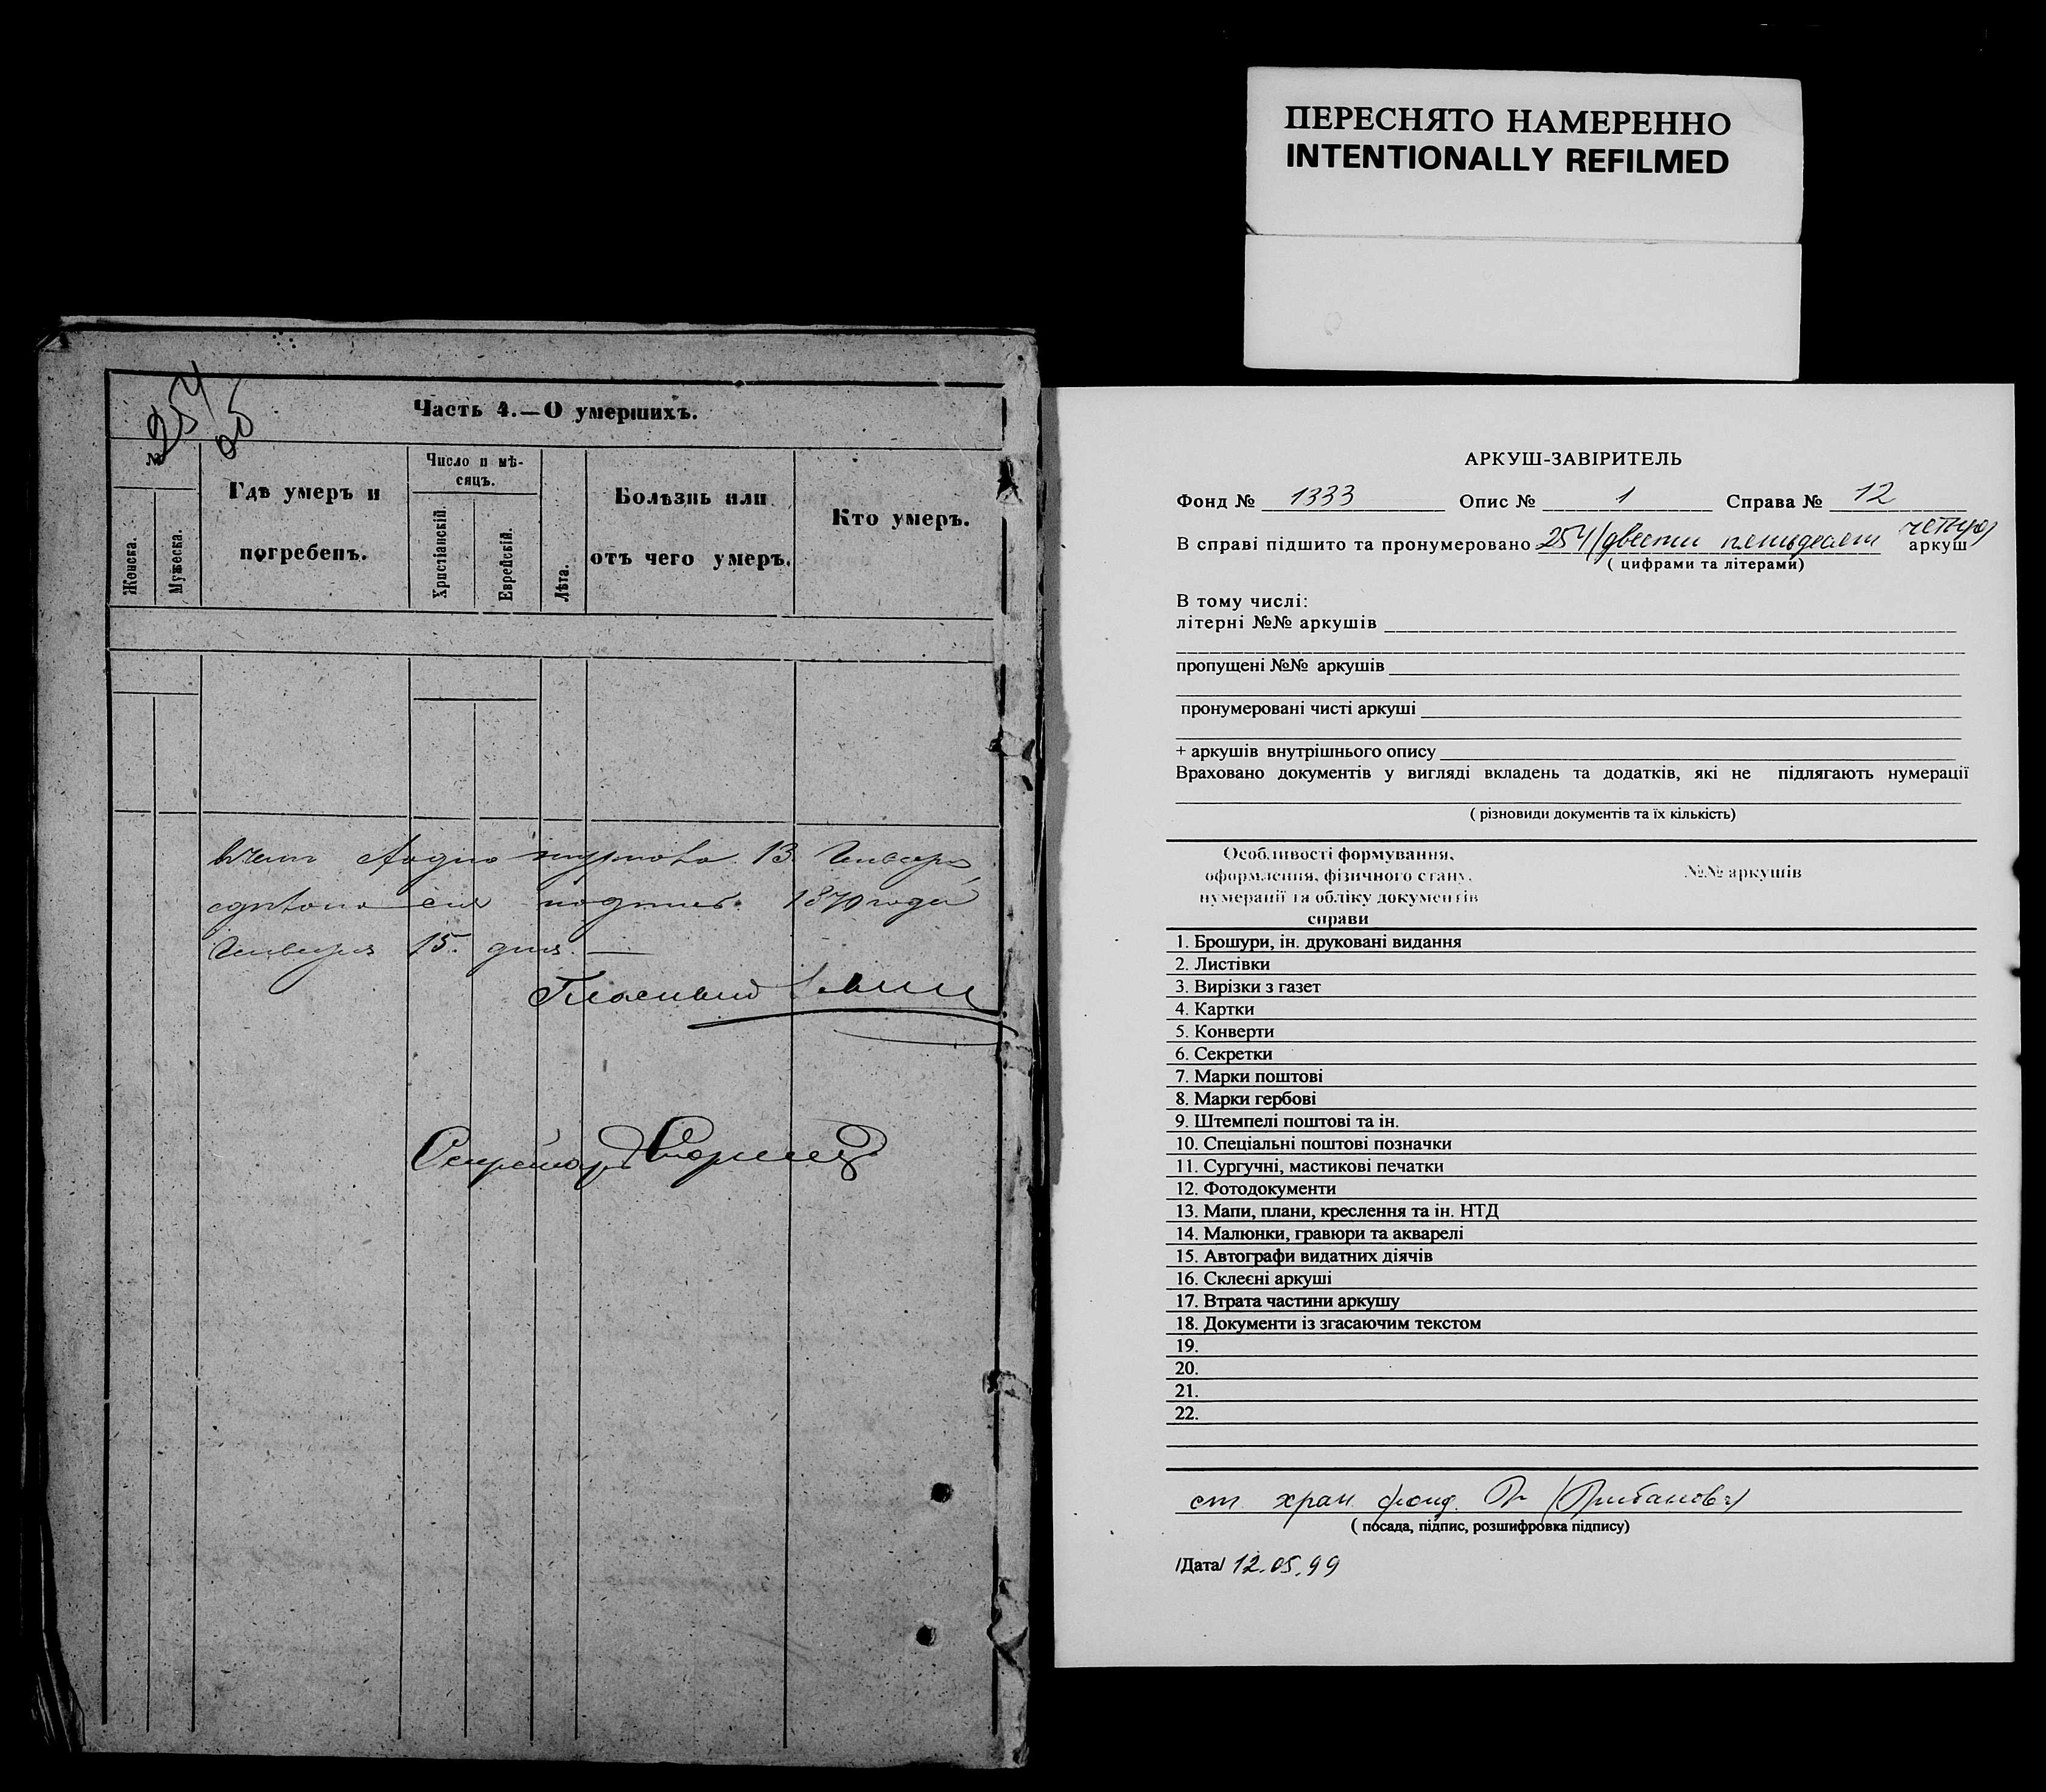 ПЕРЕСНЯТО НАМЕРЕННО
INTENTIONALLY REFILMED
254
Часть 4.—О умершихъ.
№
Женска.
Мужеска.
Гдѣ умеръ и
погребенъ.
Число и мѣ-
сяцъ.
Христіанскій.
Еврейскій.
Лѣта.
Болѣзнь или
отъ чего умеръ.
Кто умеръ.
13 Января
1870 года
Января 15 дня.
Гласный
Секретарь
АРКУШ-ЗАВІРИТЕЛЬ
Фонд № 1333 Опис № 1 Справа № 12
В справі підшито та пронумеровано 254 (двести пятьдесят четыре) аркуш
( цифрами та літерами)
В тому числі:
літерні №№ аркушів
пропущені №№ аркушів
пронумеровані чисті аркуші
+ аркушів внутрішнього опису
Враховано документів у вигляді вкладень та додатків, які не підлягають нумерації
( різновиди документів та їх кількість)
Особливості формування,
оформлення, фізичного стану,
нумерації та обліку документів
справи
№№ аркушів
1. Брошури, ін. друковані видання
2. Листівки
3. Вирізки з газет
4. Картки
5. Конверти
6. Секретки
7. Марки поштові
8. Марки гербові
9. Штемпелі поштові та ін.
10. Спеціальні поштові позначки
11. Сургучні, мастикові печатки
12. Фотодокументи
13. Мапи, плани, креслення та ін. НТД
14. Малюнки, гравюри та акварелі
15. Автографи видатних діячів
16. Склеєні аркуші
17. Втрата частини аркушу
18. Документи із згасаючим текстом
19.
20.
21.
22.
ст. хран. фонд.
( посада, підпис, розшифровка підпису)
/Дата/ 12.05.99